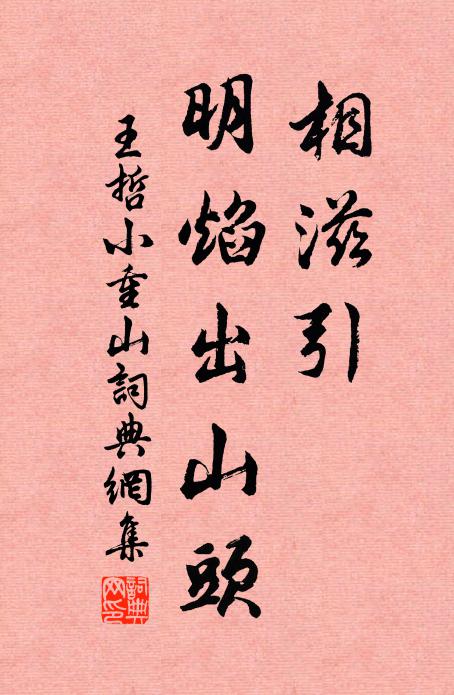 相滋引
明焰出山頭
王哲小重山詞典網集
詞典
网印